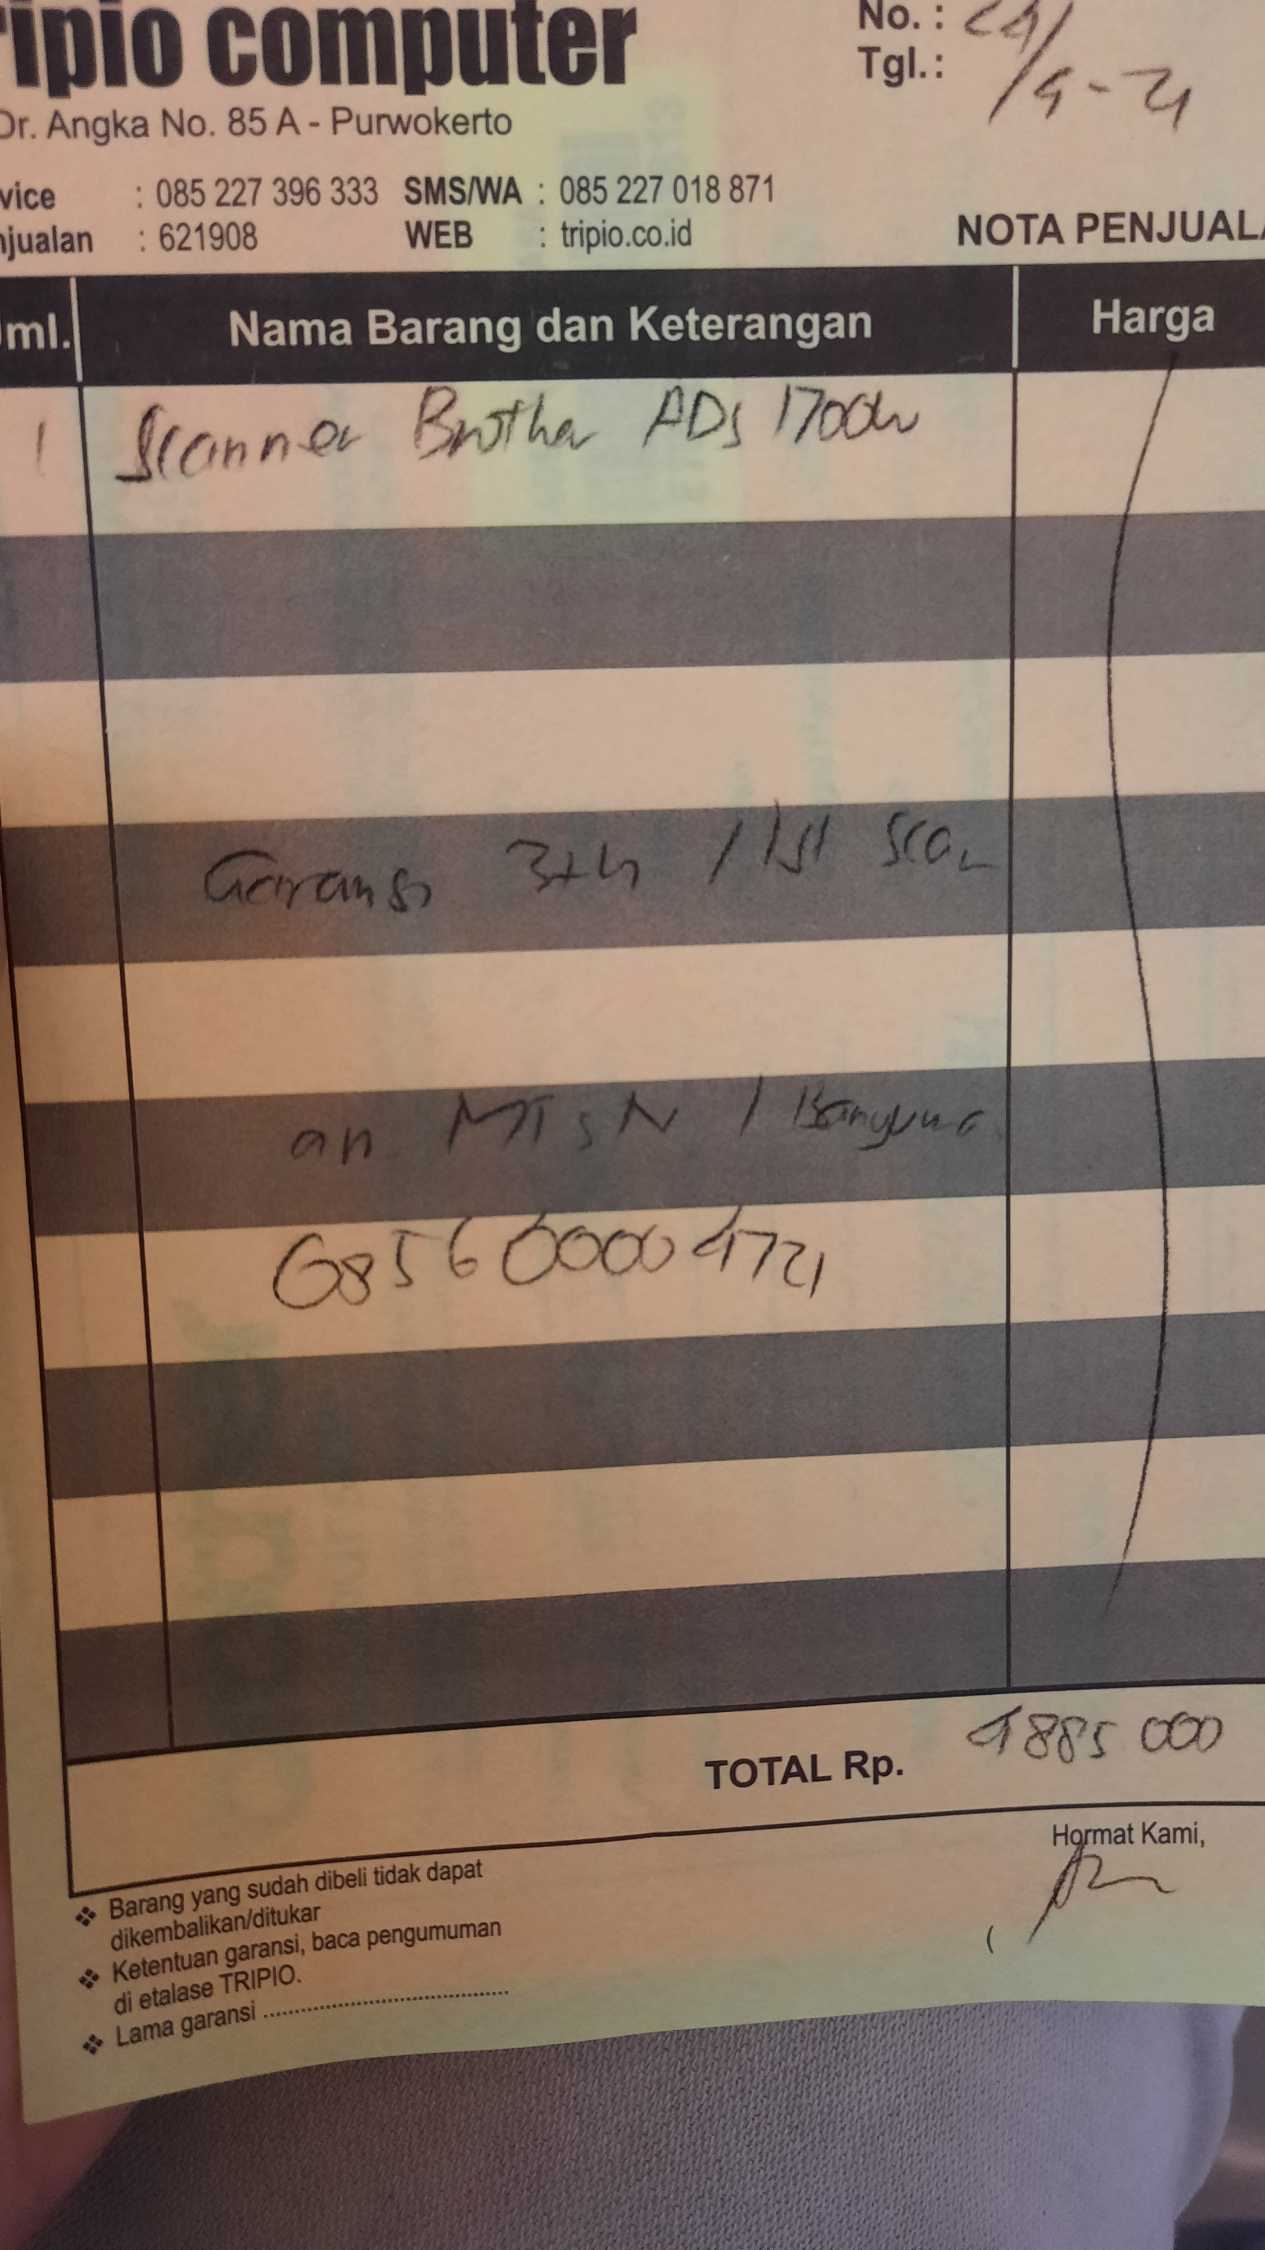 ripio computer
No. :
Tgl.: 24/9-21
Dr. Angka No. 85 A - Purwokerto
vice : 085 227 396 333 SMS/WA : 085 227 018 871
njualan : 621908 WEB : tripio.co.id
NOTA PENJUALA
ml. Nama Barang dan Keterangan Harga
1 Scanner Brother ADS 1700w
Garansi 3th / 1st Scan
an MTsN 1 Banyuma
085600004721
TOTAL Rp. 4885 000
Hormat Kami,
❖ Barang yang sudah dibeli tidak dapat
dikembalikan/ditukar
❖ Ketentuan garansi, baca pengumuman
di etalase TRIPIO.
❖ Lama garansi ........................................
(